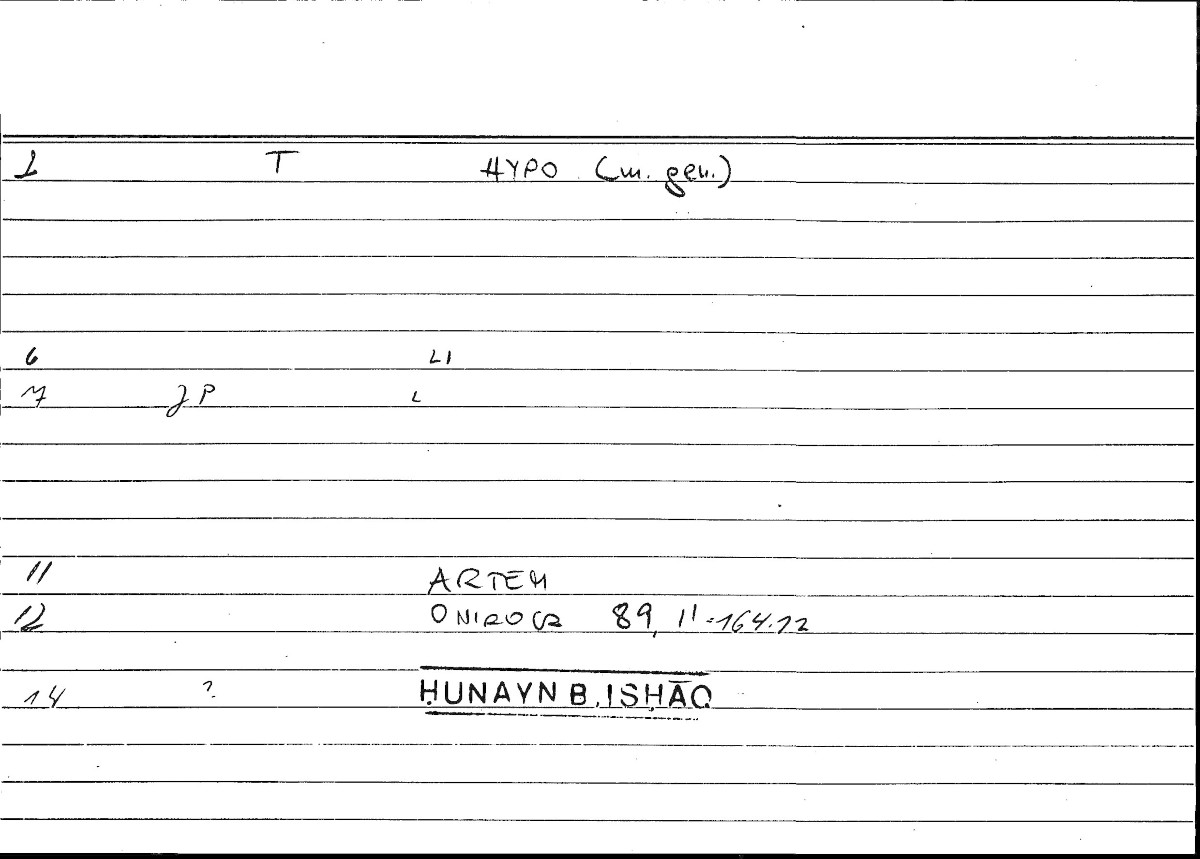 1 T HYPO (m. gen.)
6 LI
7 JP L
11 ARTEM
12 ONIROCR 89, 11 = 164.12
14 ? ḤUNAYN B. ISḤĀQ